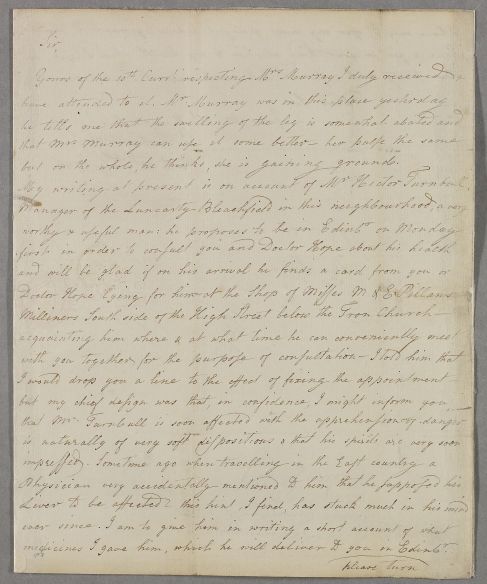 Sir,
Yours of the 10th Currt. respecting Mrs Murray I duly received &
have attended to it. Mr Murray was in this place yesterday
he tells me that the swelling of the leg is somewhat abated and
that Mrs Murray can use it some better - her pulse the same
but on the whole, he thinks, she is gaining ground.
My writing at present is on account of Mr Hector Turnbull
Manager of the Luncarty Bleachfield in this neighbourhood, a very
worthy & useful man: he proposes to be in Edinbr on Monday
first in order to consult you and Doctor Hope about his health
and will be glad if on his arrival he finds a card from you or
Doctor Hope lying for him at the Shop of Misses M & E Pillans
Milliners South side of the High Street below the Tron Church -
acquainting him where & at what time he can conveniently meet
with you together for the purpose of consultation - I told him that
I would drop you a line to the effect of fixing the appointment -
but my chief design was that, in confidence, I might inform you
that Mr Turnbull is soon affected with the apprehension of danger
is naturally of very soft dispositions & that his spirits are very soon
impressed. Sometime ago when travelling in the East country a
Physician very accidentally mentioned to him that he supposed his
Liver to be affected: this hint, I find, has stuck much in his mind
ever since. I am to give him in writing a short account of what
medicines I gave him, which he will deliver to you in Edinbr.
please turn